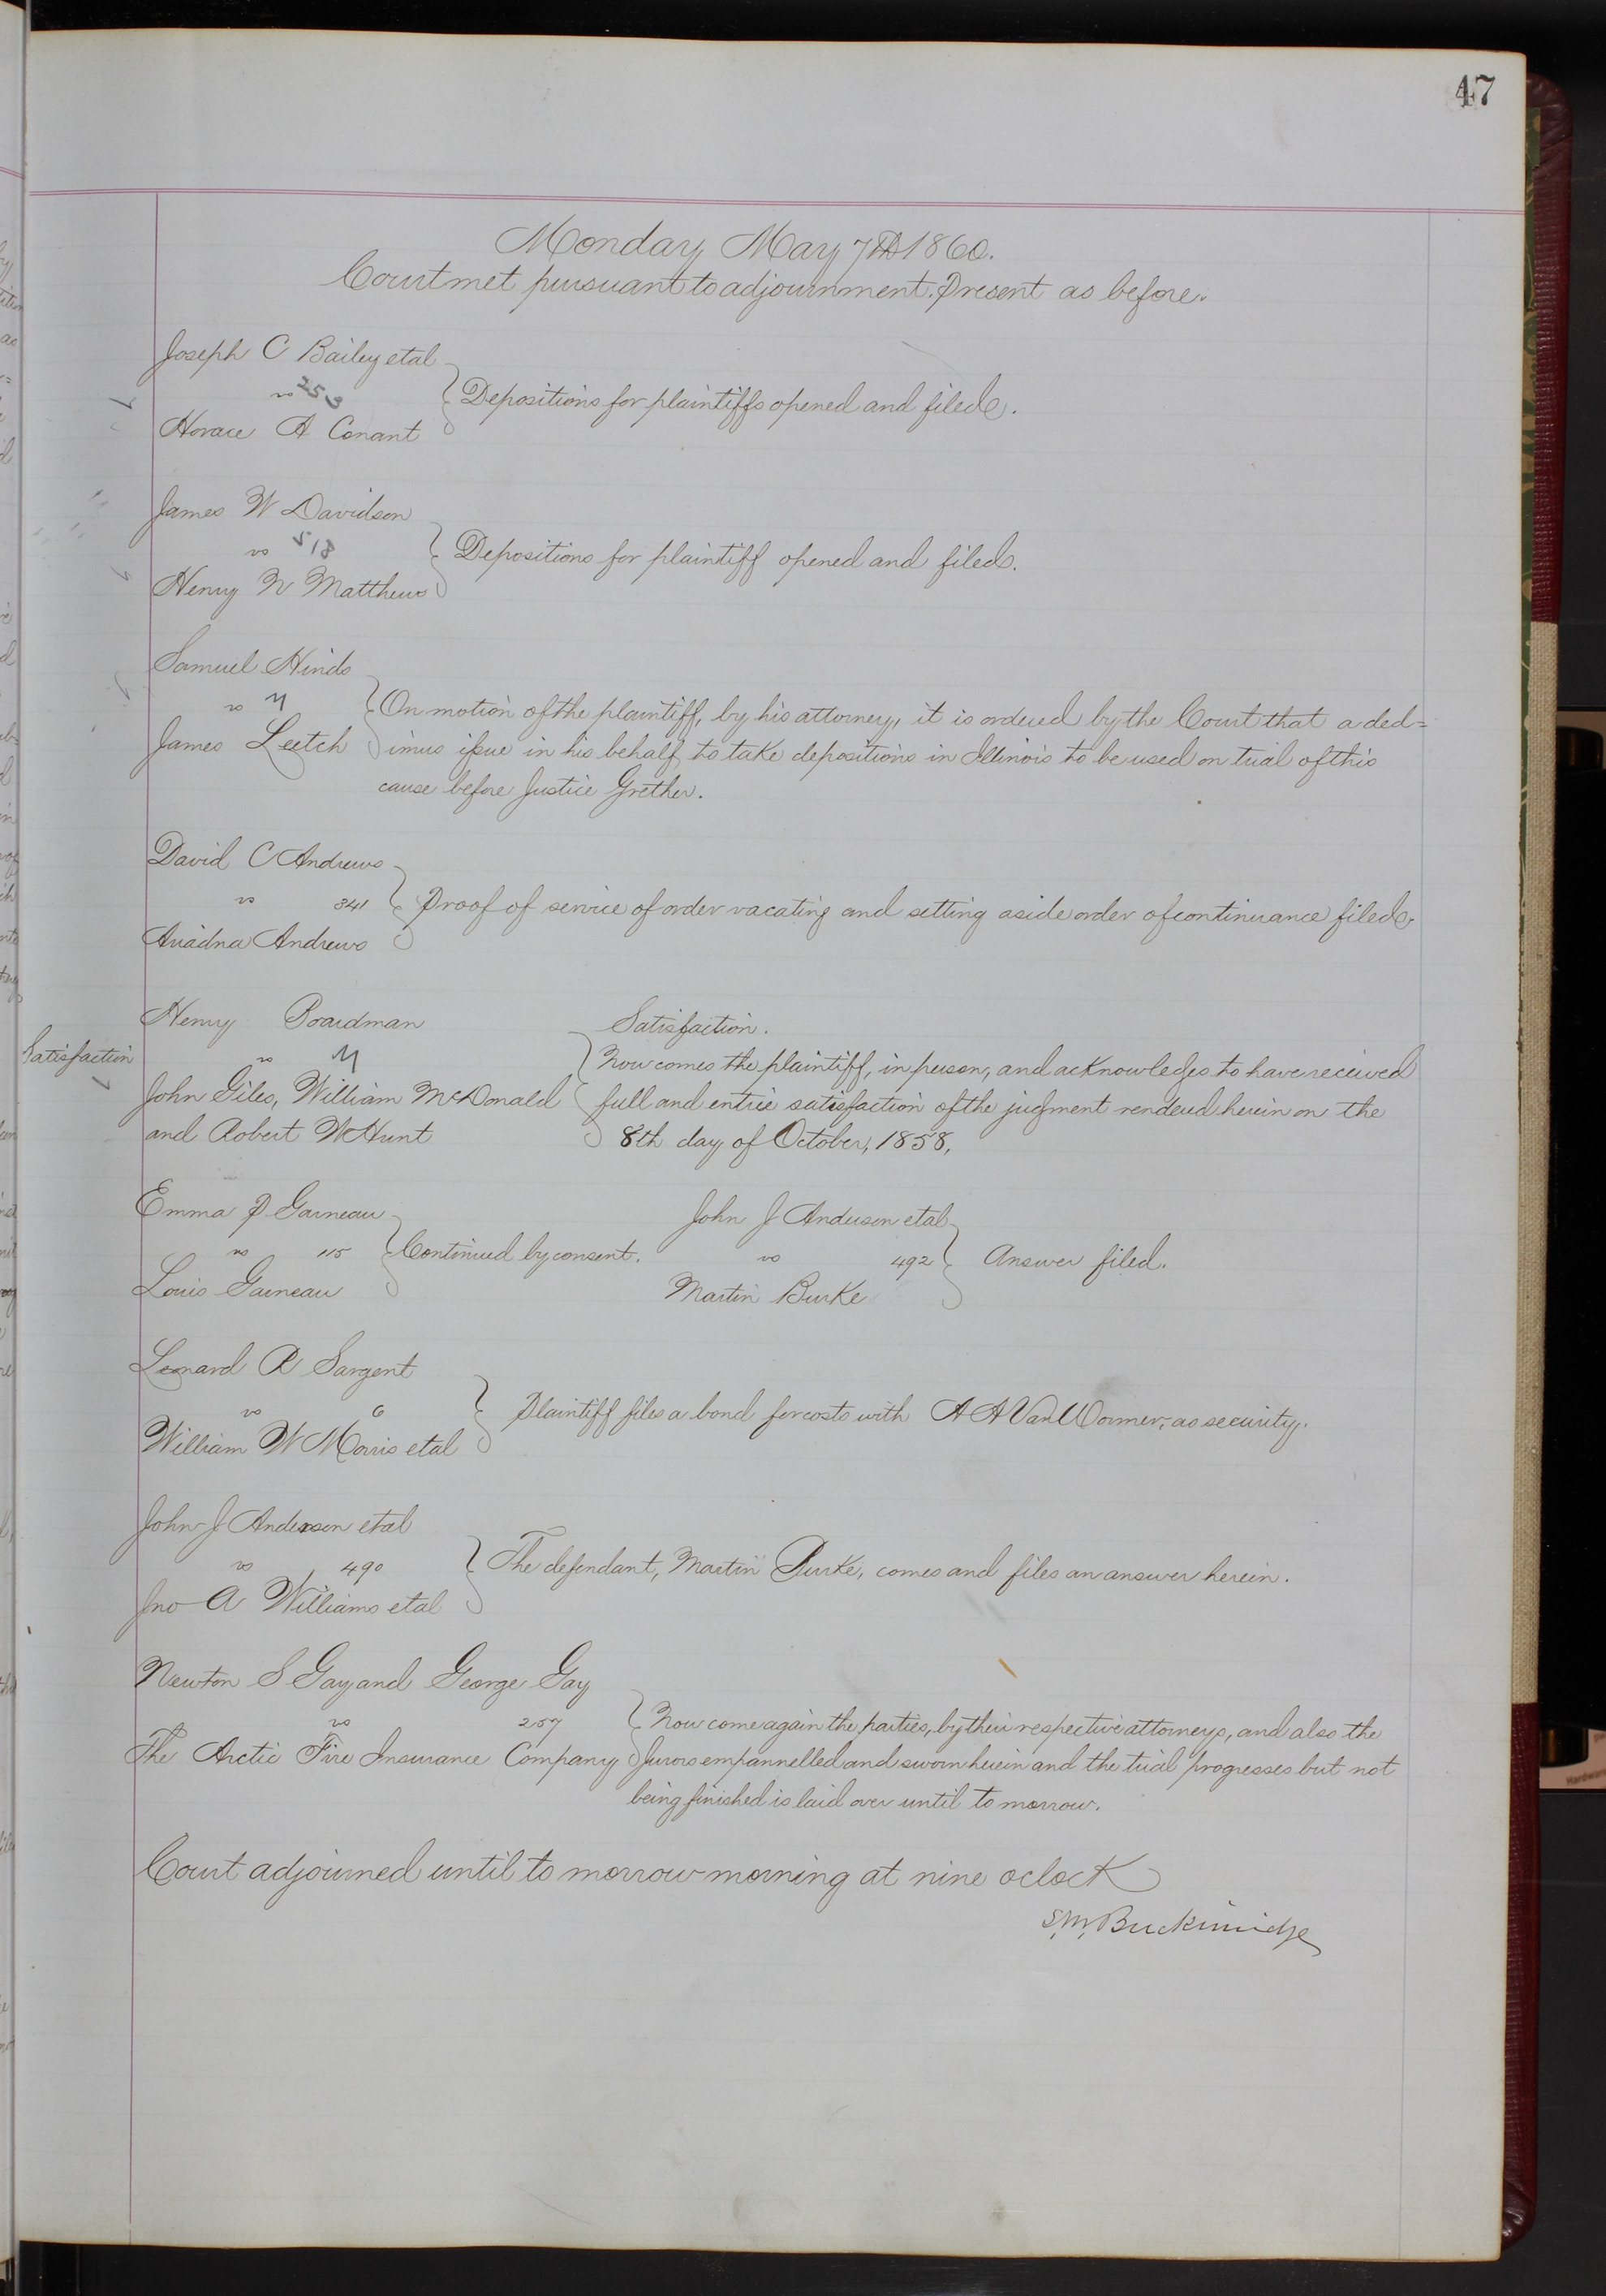 47
Monday May 7th 1860.
Court met pursuant to adjournment. Present as before.
Joseph C Bailey et al
vs 253
Horace A Conant
Depositions for plaintiffs opened and filed.
James W Davidson
vs 518
Henry N Matthews
Depositions for plaintiff opened and filed.
Samuel Hinds
vs
James Leetch
On motion of the plaintiff, by his attorney, it is ordered by the Court that a ded=
imus issue in his behalf to take depositions in Illinois to be used on trial of this
cause before Justice Grether.
David C Andrews
vs 341
Ariadna Andrews
Proof of service of order vacating and setting aside order of continuance filed.
Satisfaction
Henry Boardman
vs
John Giles, William McDonald
and Robert W Hunt
Satisfaction.
Now comes the plaintiff, in person, and acknowledges to have received
full and entire satisfaction of the judgment rendered herein on the
8th day of October, 1858,
Emma P Garneau
vs 115
Louis Garneau
Continued by consent.
John J Anderson et al
vs 492
Martin Burke
Answer filed.
Leonard R Sargent
vs 6
William W Morris et al
Plaintiff files a bond for costs with A A Van Wormer, as security.
John J Anderson et al
vs 490
Jno A Williams et al
The defendant, Martin Burke, comes and files an answer herein.
Newton S Gay and George Gay
vs 257
The Arctic Fire Insurance Company
Now come again the parties, by their respective attorneys, and also the
Jurors empannelled and sworn herein and the trial progresses but not
being finished is laid over until to morrow.
Court adjourned until to morrow morning at nine oclock
S. M. Breckinridge